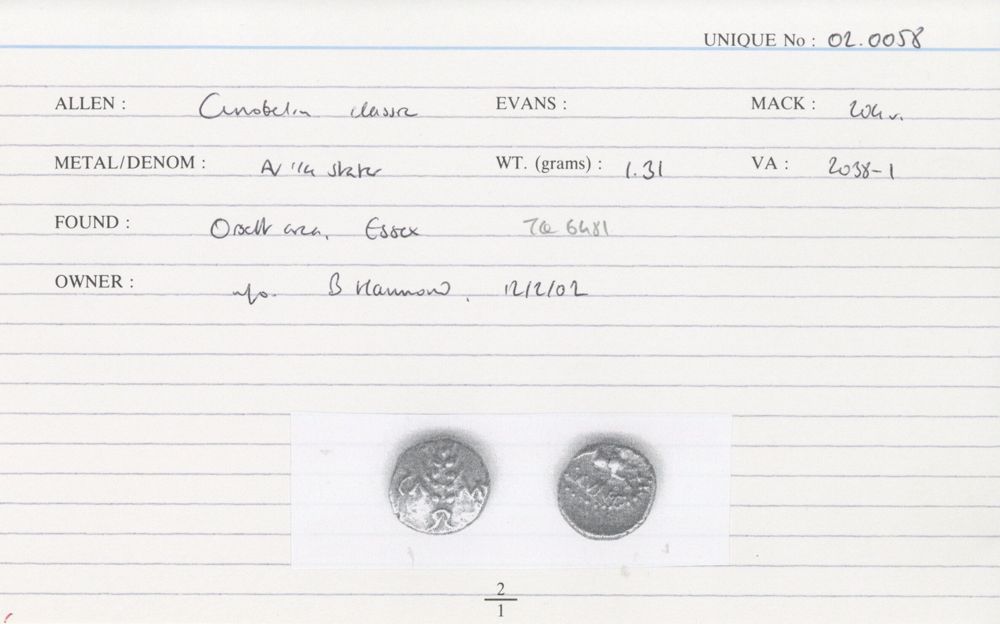 UNIQUE No : 02.0058
ALLEN : Cunobelin classic EVANS : MACK : 204 v.
METAL/DENOM : AV 1/4 stater WT. (grams) : 1.31 VA : 2038-1
FOUND : Orsett area, Essex TQ 6481
OWNER : info. B Hammond, 12/2/02
CA M
2
1